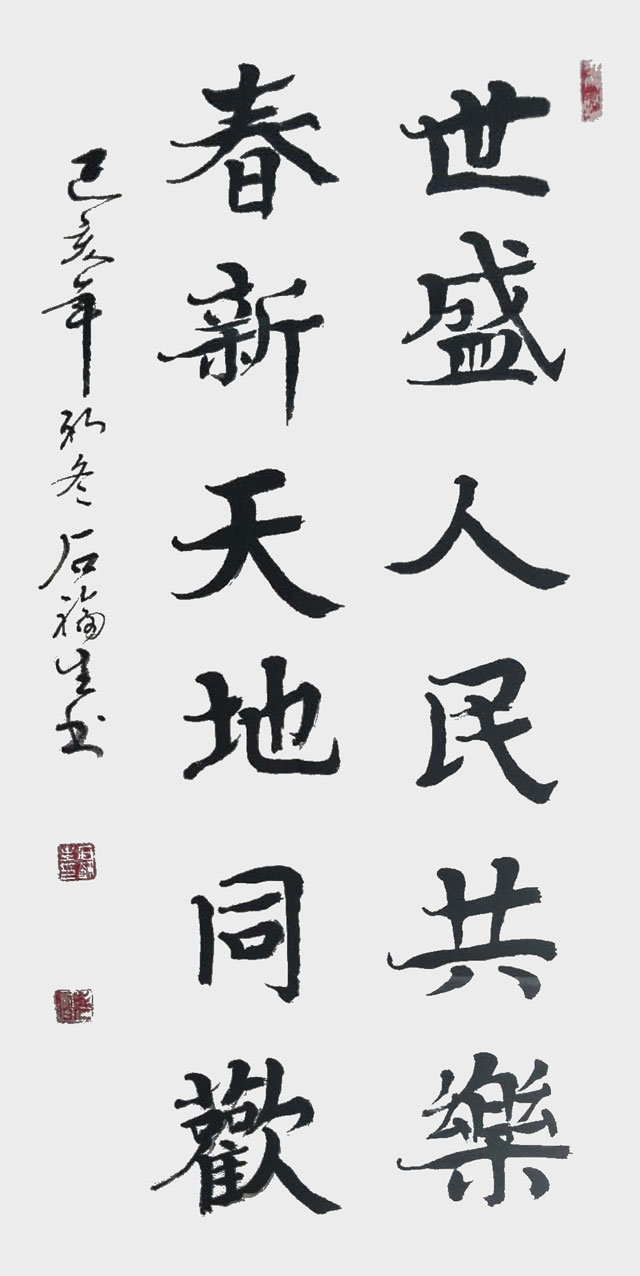 世盛人民共樂
春新天地同歡
己亥年初冬石福生书